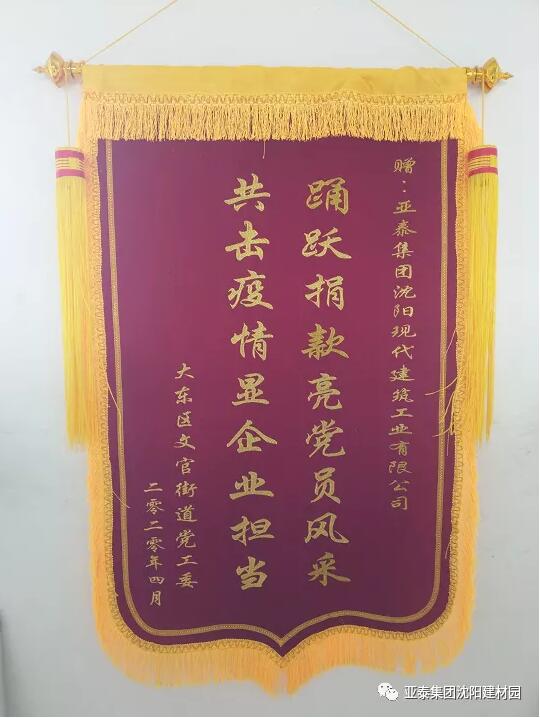 赠：亚泰集团沈阳现代建筑工业有限公司
踊跃捐款亮党员风采
共击疫情显企业担当
大东区文官街道党工委
二零二零年四月
亚泰集团沈阳建材园